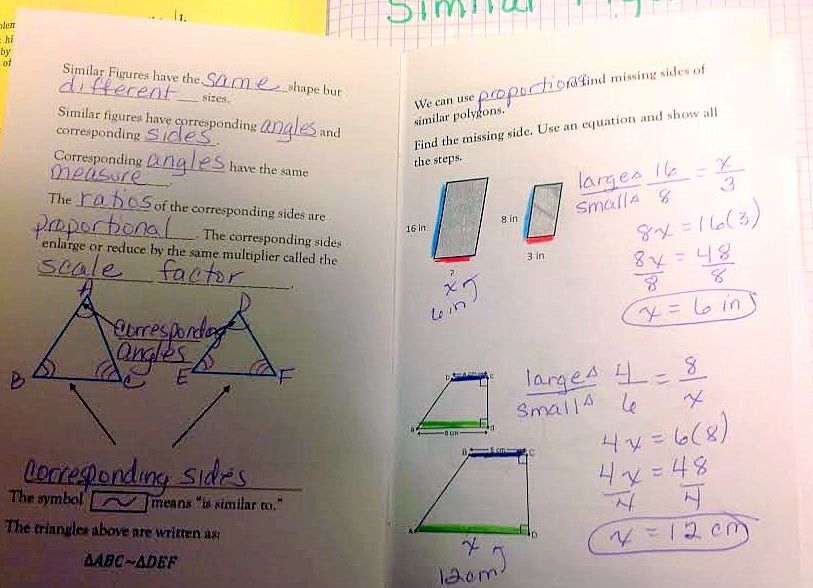 1.
by
of
Similar Figures have the same shape but
different sizes.
Similar figures have corresponding angles and
corresponding sides.
Corresponding angles have the same
measure.
The ratios of the corresponding sides are
proportional. The corresponding sides
enlarge or reduce by the same multiplier called the
scale factor.
A
D
corresponding
angles
B
C
E
F
Corresponding sides
The symbol ~ means "is similar to."
The triangles above are written as:
ΔABC~ΔDEF
Similar
We can use proportions to find missing sides of
similar polygons.
Find the missing side. Use an equation and show all
the steps.
16 in
8 in
3 in
?
x
6 in
large Δ 16 = x
small Δ 8 3
8x = 16(3)
8x = 48
8 8
x = 6 in
large Δ 4 = 8
small Δ 6 x
4x = 6(8)
4x = 48
4 4
x = 12 cm
4 cm
8 cm
B
C
A
D
x
12cm